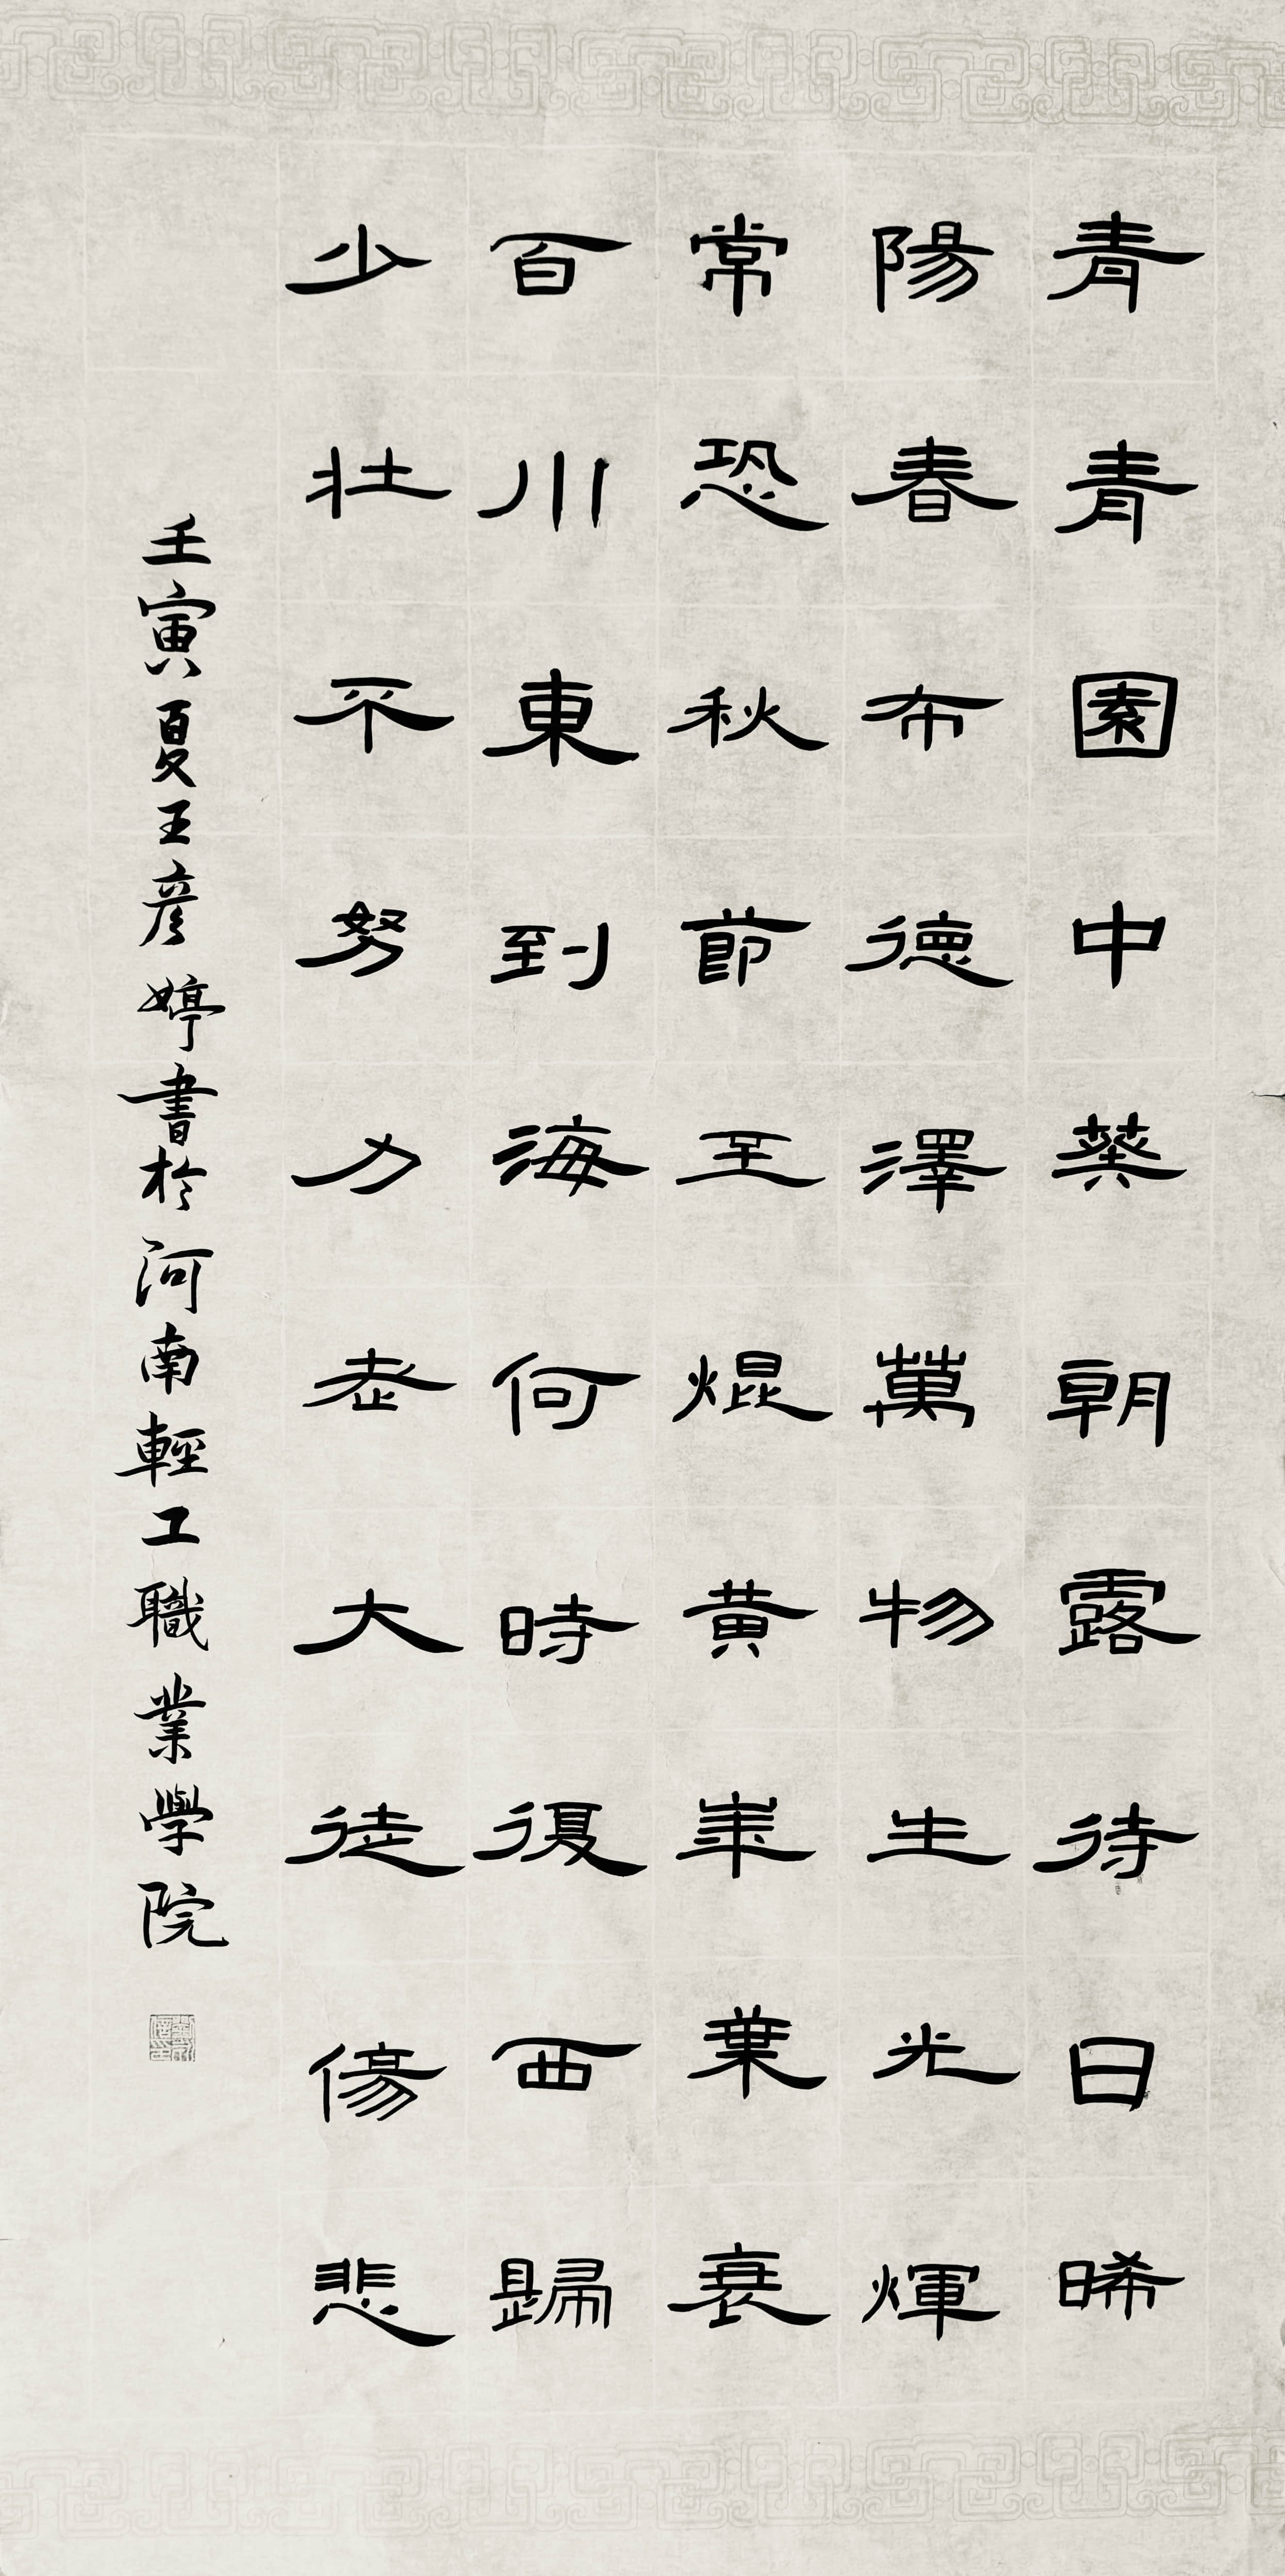 青青園中葵朝露待日晞
陽春布德澤萬物生光輝
常恐秋節至焜黃華葉衰
百川東到海何時復西歸
少壯不努力老大徒傷悲
壬寅夏王彥婷書於河南輕工職業學院